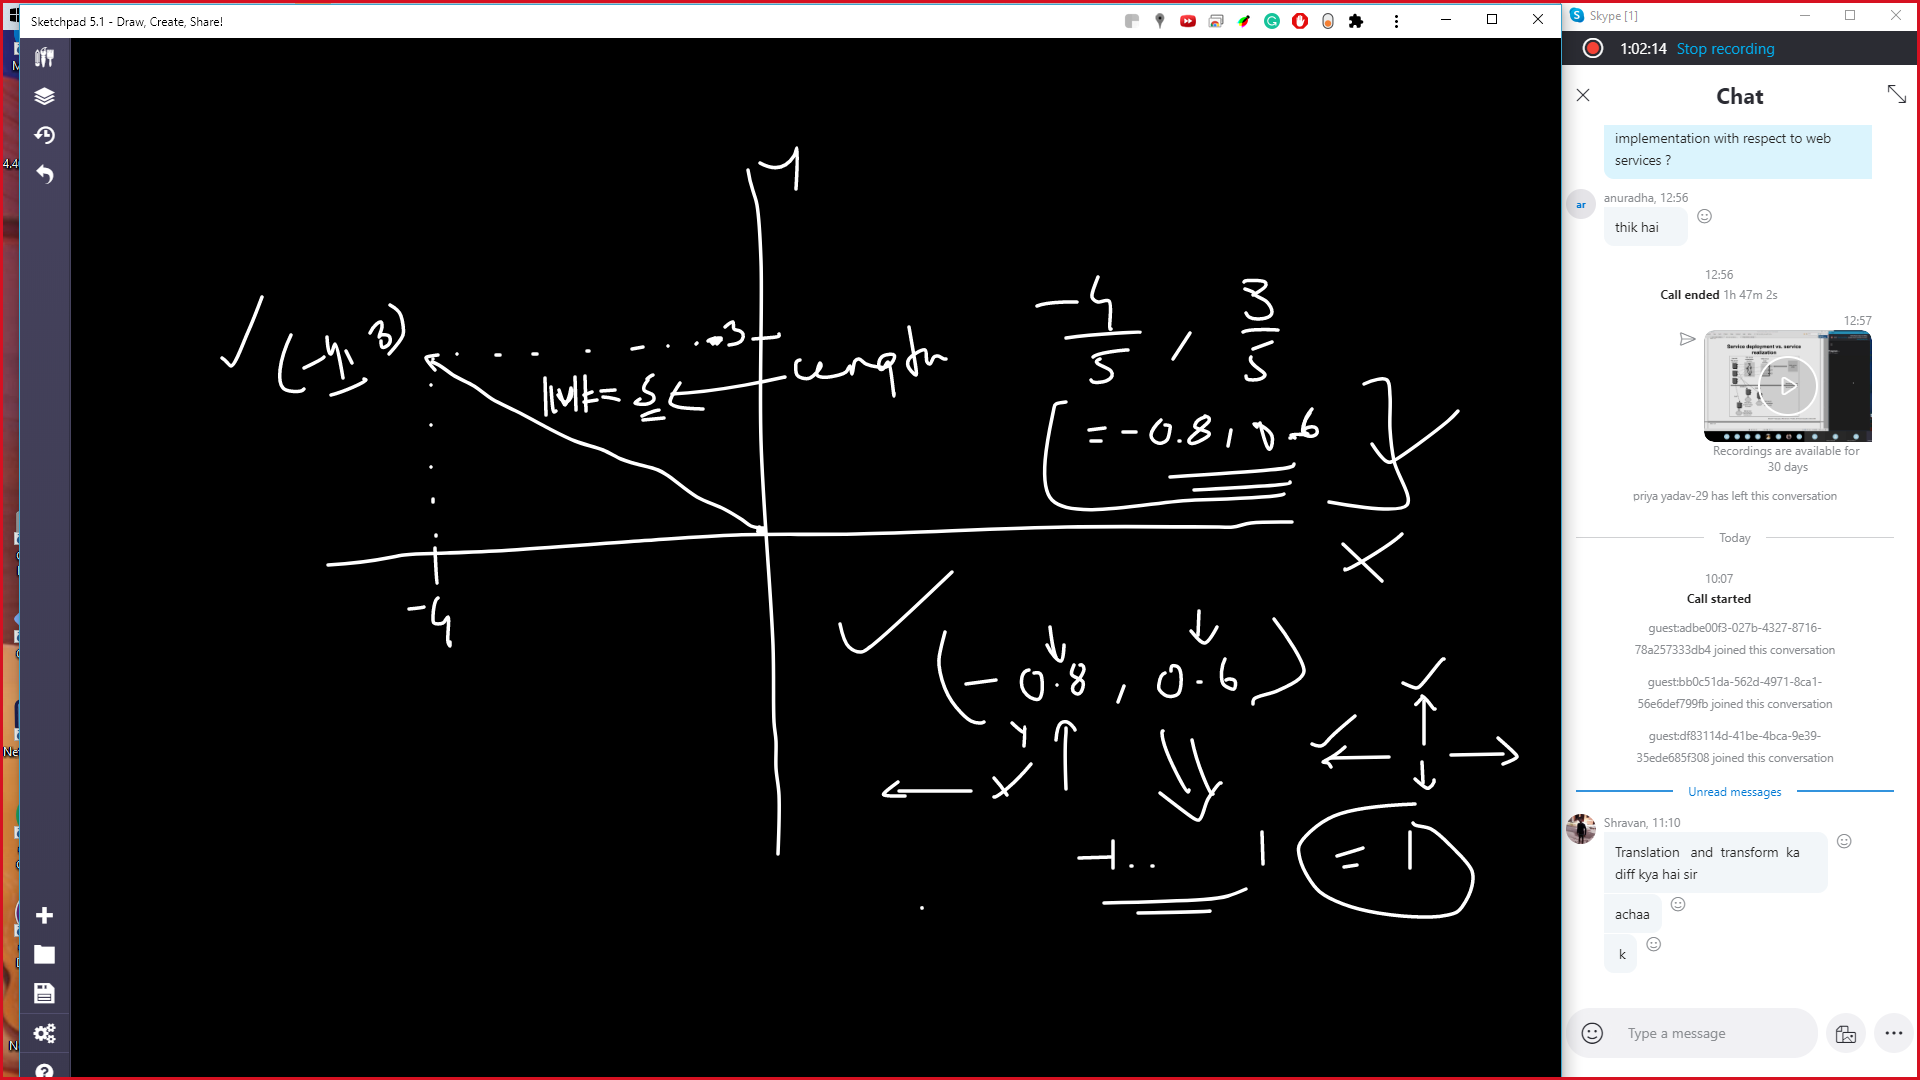 Sketchpad 5.1 - Draw, Create, Share!
Y
(-4, 3)
3
length
||v|| = 5
-4/5 , 3/5
= -0.8, 0.6
X
-4
(-0.8, 0.6)
Y
X
-1.. 1 = 1
4.4
Skype [1]
1:02:14 Stop recording
Chat
implementation with respect to web
services ?
anuradha, 12:56
ar
thik hai
12:56
Call ended 1h 47m 2s
12:57
Service deployment vs. service
realization
Recordings are available for
30 days
priya yadav-29 has left this conversation
Today
10:07
Call started
guest:adbe00f3-027b-4327-8716-
78a257333db4 joined this conversation
guest:bb0c51da-562d-4971-8ca1-
56e6def799fb joined this conversation
guest:df83114d-41be-4bca-9e39-
35ede685f308 joined this conversation
Unread messages
Shravan, 11:10
Translation and transform ka
diff kya hai sir
achaa
k
Type a message